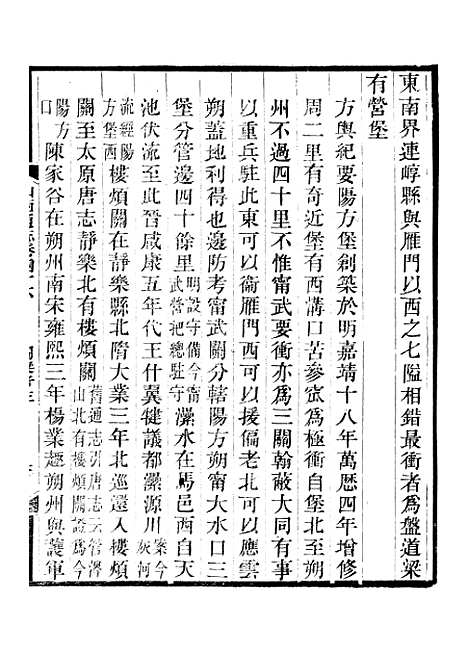 東南界連崞縣與雁門以西之七隘相錯最衝者爲盤道梁
有營堡
方輿紀要陽方堡創築於明嘉靖十八年萬歷四年增修
周二里有奇近堡有西溝口苦參窊爲極衝自堡北至朔
州不過四十里不惟甯武要衝亦爲三關翰蔽大同有事
以重兵駐此東可以衞雁門西可以援偏老北可以應雲
朔蓋地利得也邊防考甯武關分轄陽方朔甯大水口三
堡分管邊四十餘里明設守備今甯武營把總駐守㶟水在馬邑西自天
池伏流至此晉咸康五年代王什翼犍議都㶟源川案今灰河
流經陽方堡西樓煩關在靜樂縣北隋大業三年北巡還入樓煩
關至太原唐志靜樂北有樓煩關舊通志引唐志云管涔山北有樓煩關證爲今
陽方口陳家谷在朔州南宋雍熙三年楊業趣朔州與護軍